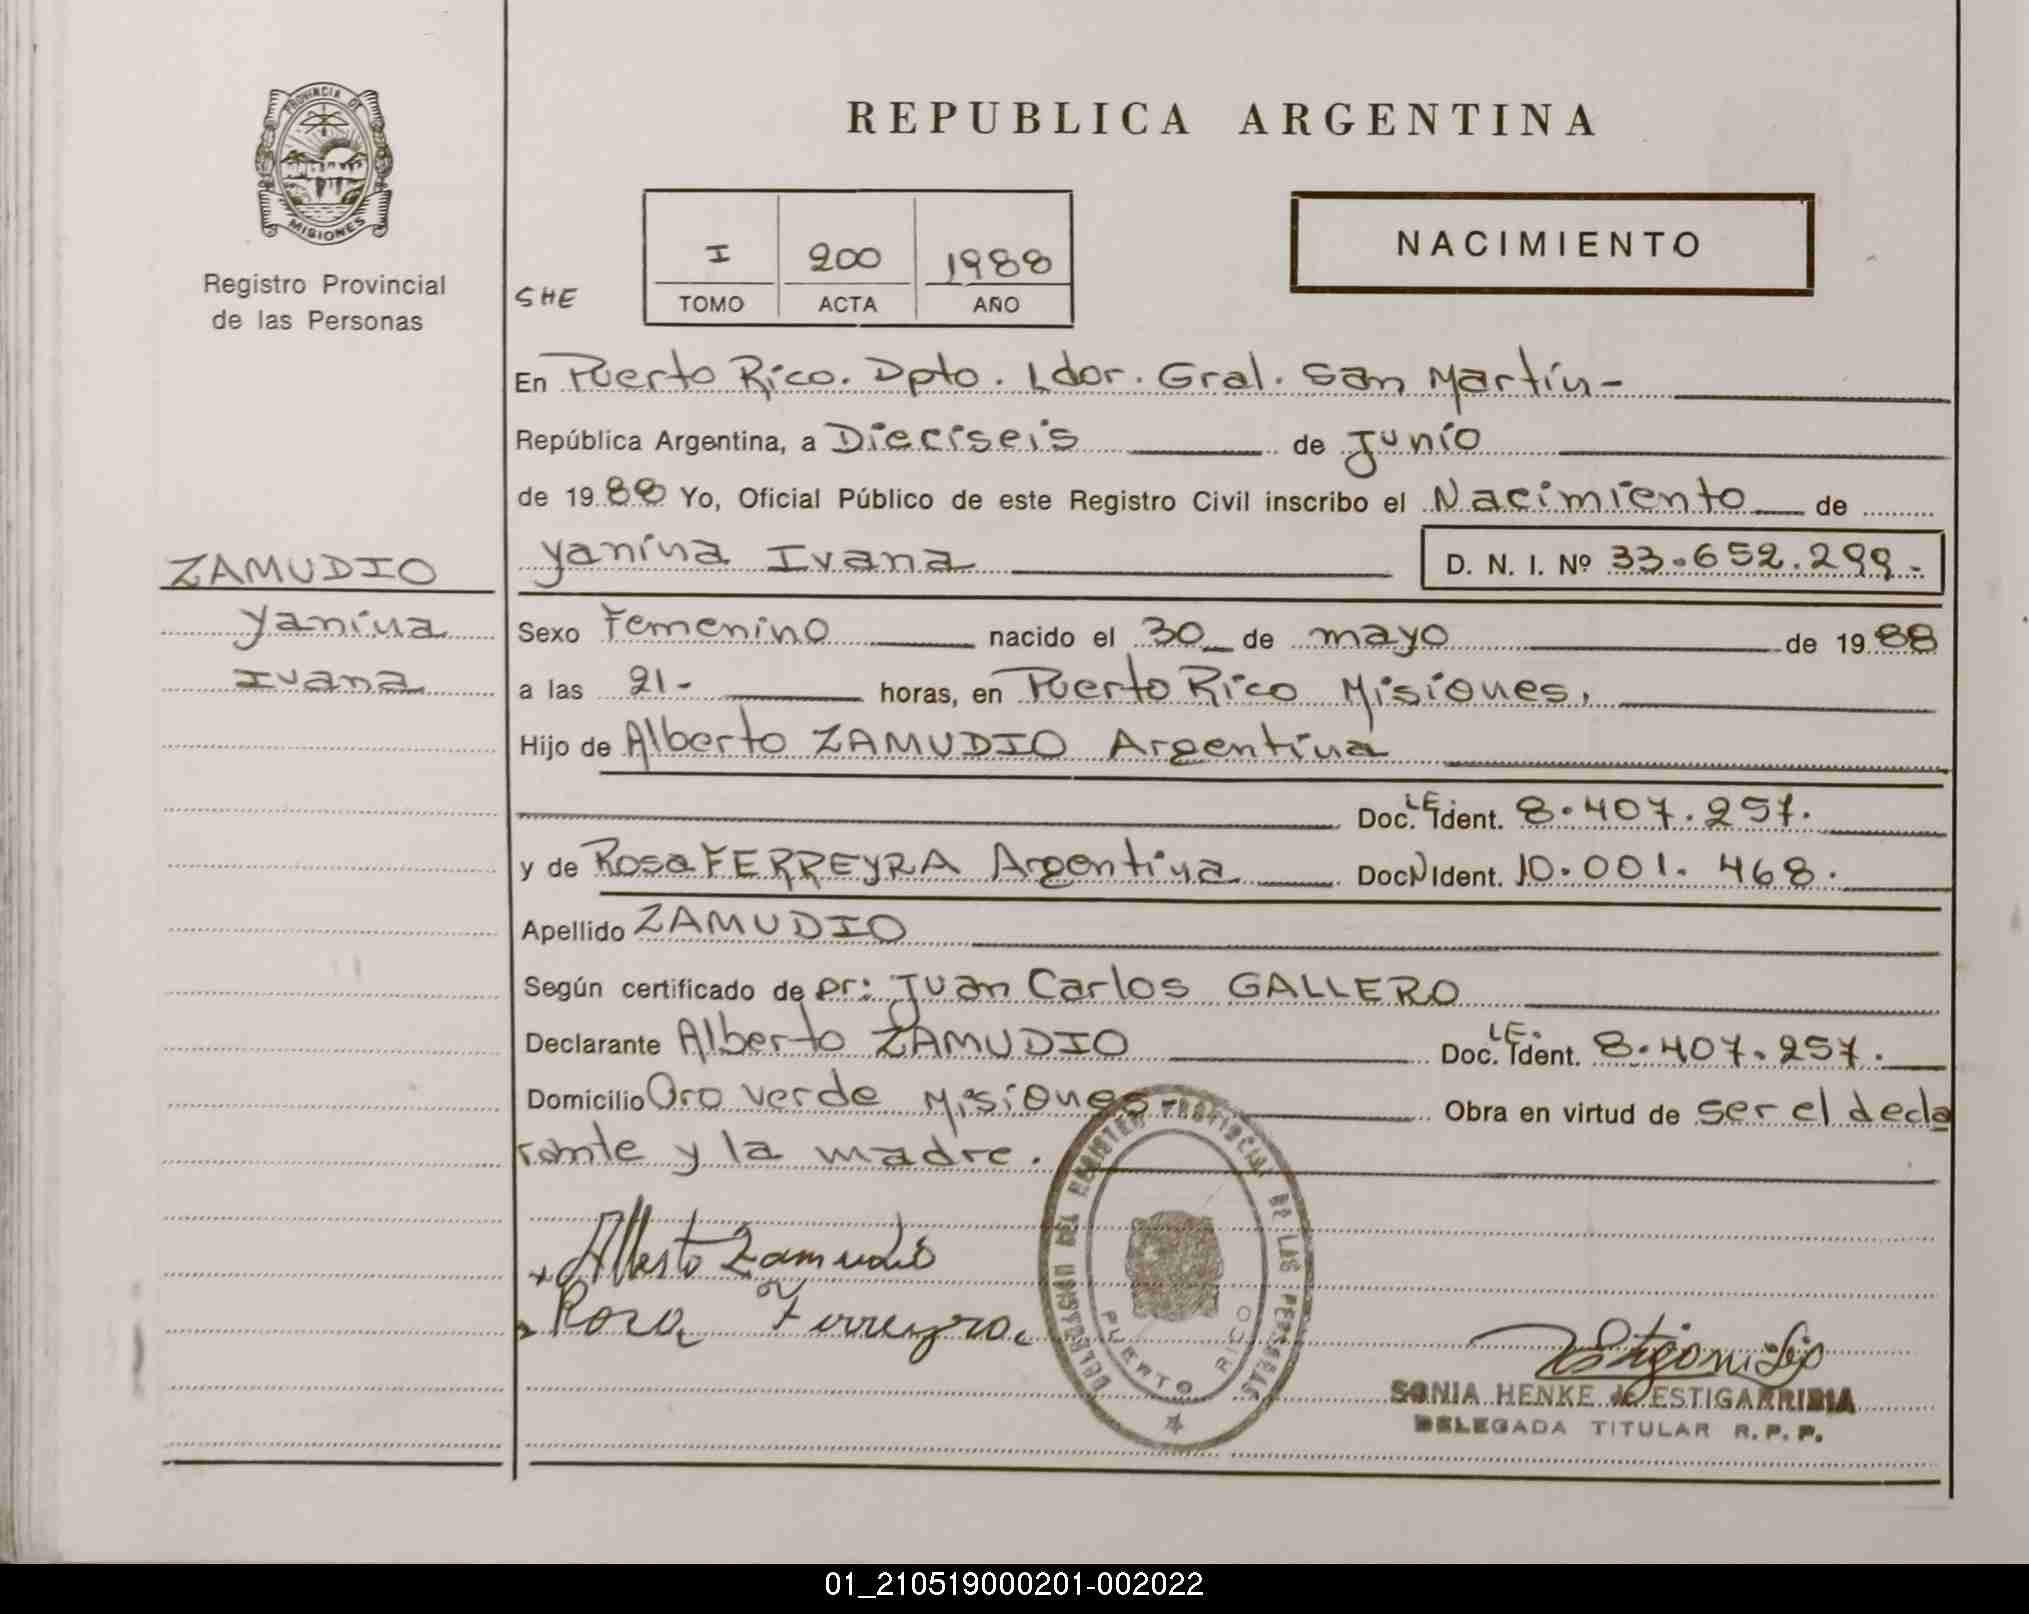 PROVINCIA DE
MISIONES
Registro Provincial
de las Personas
REPUBLICA ARGENTINA
NACIMIENTO
I 200 1988
TOMO ACTA AÑO
SHE
En Puerto Rico. Dpto. Ldor. Gral. San Martín-
República Argentina, a Dieciseis de Junio
de 1988 Yo, Oficial Público de este Registro Civil inscribo el Nacimiento de
Yanina Ivana D. N. I. Nº 33.652.299.-
ZAMUDIO
Yanina
Ivana
Sexo Femenino nacido el 30 de mayo de 1988
a las 21- horas, en Puerto Rico Misiones.
Hijo de Alberto ZAMUDIO Argentina
Doc. LE. Ident. 8.407.257.
y de Rosa FERREYRA Argentina Doc N Ident. 10.001.468.
Apellido ZAMUDIO
Según certificado de Dr: Juan Carlos GALLERO
Declarante Alberto ZAMUDIO Doc. LE. Ident. 8.407.257.
Domicilio Oro verde Misiones- Obra en virtud de ser el decla
rante y la madre.
Alberto Zamudio
Rosa Ferreyra
DELEGACION DEL REGISTRO PROVINCIAL DE LAS PERSONAS
PUERTO RICO
SONIA HENKE de ESTIGARRIBIA
DELEGADA TITULAR R.P.P.
01_210519000201-002022